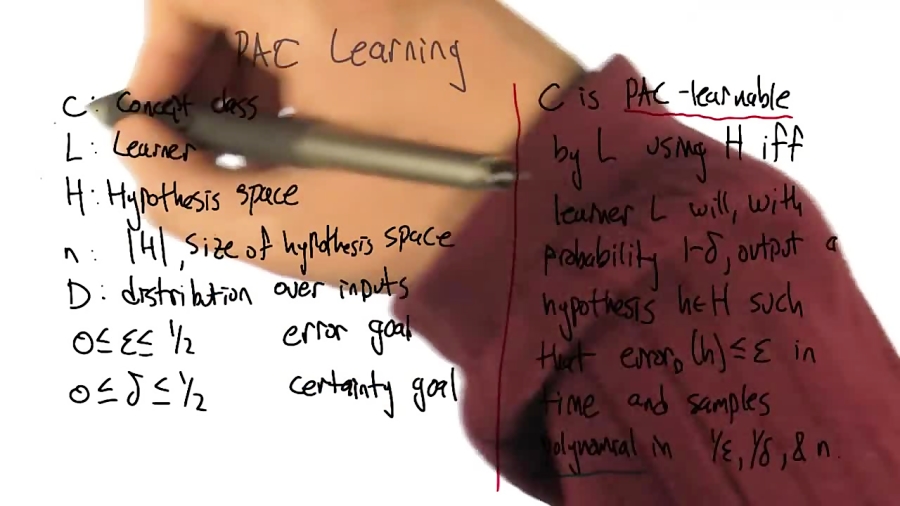 PAC Learning
C: Concept class
L: Learner
H: Hypothesis space
n: |H|, size of hypothesis space
D: distribution over inputs
0≤ε≤1/2 error goal
0≤δ≤1/2 certainty goal
C is PAC-learnable
by L using H iff
learner L will, with
probability 1-δ, output a
hypothesis h∈H such
that error_D(h)≤ε in
time and samples
polynomial in 1/ε, 1/δ, & n.